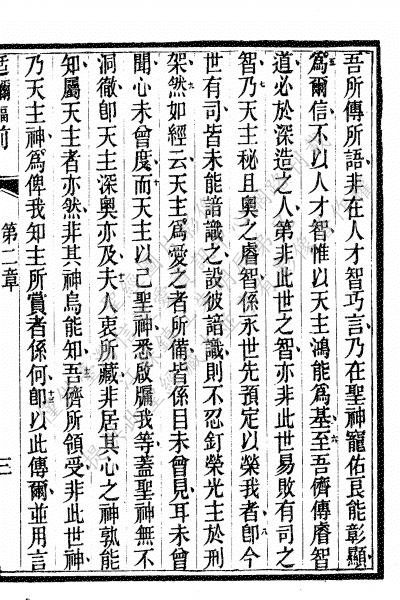 吾所傳所語、非在人才智巧言、乃在聖神寵佑良能彰顯、
爲爾信不以人才智、惟以天主鴻能爲基、至吾儕傳睿智
道、必於深造之人、第非此世之智、亦非此世易敗有司之
智、乃天主秘且奧之睿智、係永世先預定以榮我者、卽今
世有司皆未能諳識之、設彼諳識、則不忍釘榮光主於刑
架、然如經云、天主爲愛之者所備、皆係目未曾見、耳未曾
聞、心未曾度、而天主以己聖神悉啟牖我等、蓋聖神無不
洞徹、卽天主深奧亦及、夫人衷所藏、非居其心之神、孰能
知、屬天主者亦然、非其神烏能知、吾儕所領受、非此世神、
乃天主神、爲俾我知主所賞者係何、卽以此傳爾、並用言
前
第二章
三